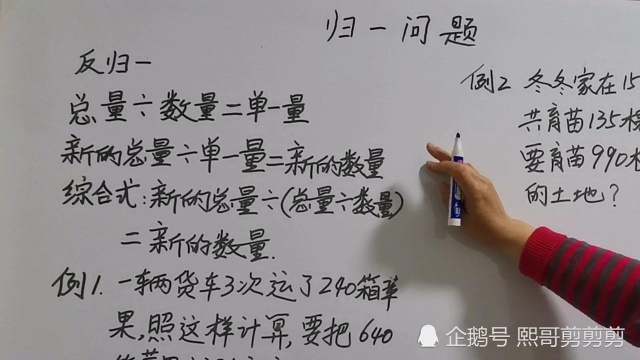 归一问题
反归一
总量÷数量=单一量
新的总量÷单一量=新的数量
综合式:新的总量÷(总量÷数量)
=新的数量.
例1.一辆货车3次运了240箱苹
果,照这样计算,要把640
例2 冬冬家在15
共育苗135棵
要育苗990棵
的土地?
企鹅号 熙哥剪剪剪